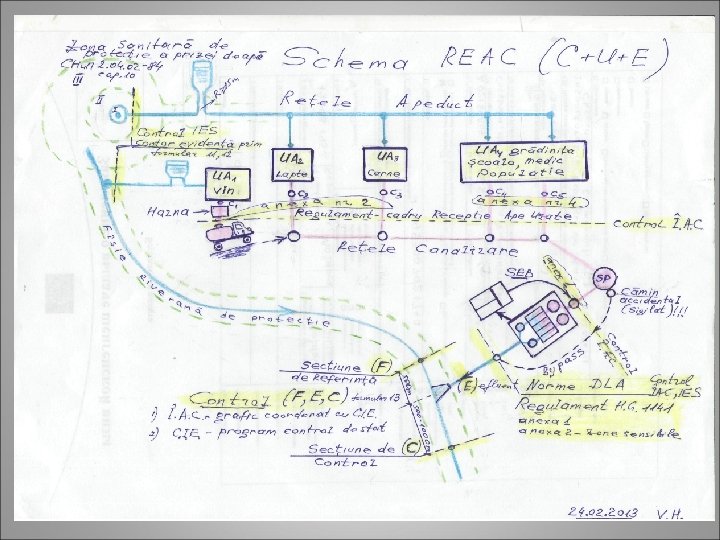 Zona Sanitară de
protecție a prizei deapă
СНиП 2.04.02-84
cap.10
III
II
I
Schema REAC (C+U+E)
Rețele Apeduct
Control IES
Contor evidență prim
formular
UA1
vin
UA2
Lapte
UA3
Carne
UA4 grădinița
școala, medic
populatie
Hazna
C1
C2
C3
C4
C5
anexa nr. 2
(anexa nr. 4)
Regulament-cadru Receptie Ape Uzate
control Î.A.C
Rețele Canalizare
Fîșie Riverană de protectie
SEB
anexa
SP
Cămin
accidental
(sigilat)!!!
Control
bypass
Sectiune (F)
de Referință
(E) efluent Norme DLA
Control
IAC, IES
Control (F,E,C) formular 13
Regulament H.G. 1141
anexa 1
anexa 2 - zone sensibile
1) Î.A.C. - grafic coordonat cu C.I.E.
2) CIE - program control de stat
Sectiune de (C)
Control
24.02.2013 V.H.